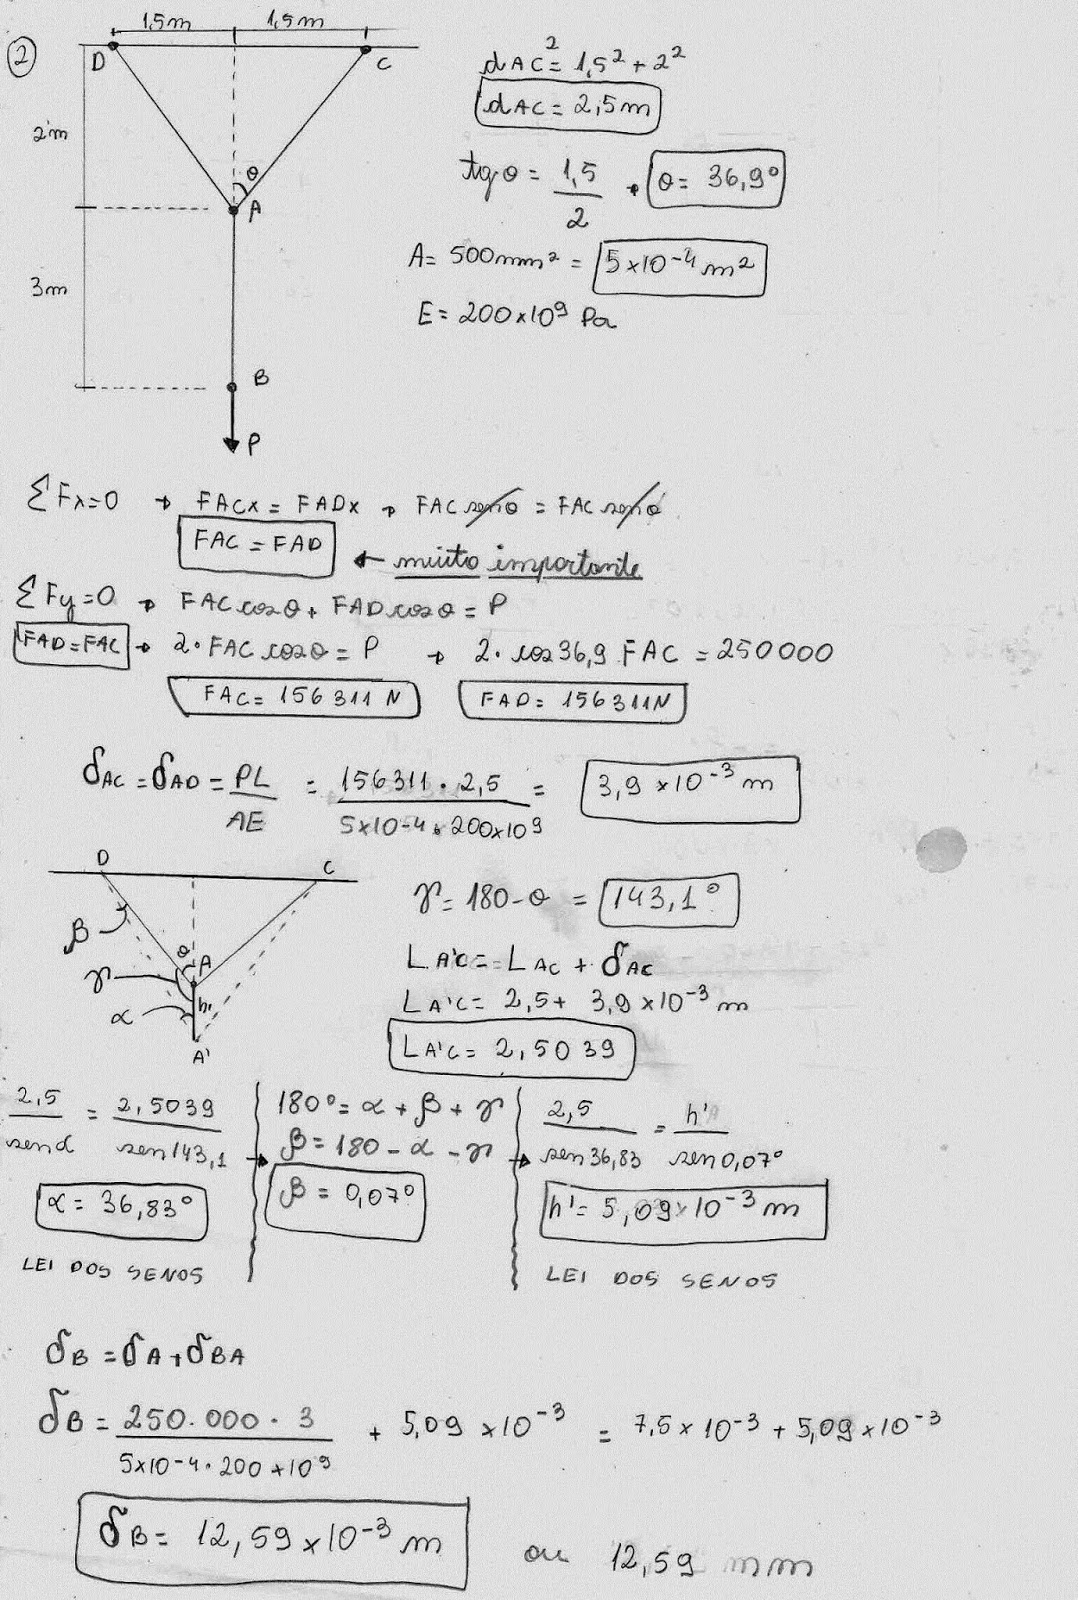 1,5m 1,5m
2
D C
dAC² = 1,5² + 2²
dAC = 2,5m
2m
θ
tgθ = 1,5/2 → θ = 36,9°
A
A = 500mm² = 5×10-4 m²
3m
E = 200×10⁹ Pa
B
P
ΣFx=0 → FACx = FADx → FAC senθ = FAC senθ
FAC = FAD ← muito importante
ΣFy=0 → FAC cosθ + FAD cosθ = P
FAD=FAC → 2·FAC cosθ = P → 2·cos36,9 FAC = 250000
FAC = 156311 N FAD = 156311N
δAC = δAD = PL/AE = 156311·2,5/5×10-4·200×10⁹ = 3,9×10⁻³ m
D C
β θ A
γ h'
α
A'
γ = 180-θ = 143,1°
LA'C = LAC + δAC
LA'C = 2,5 + 3,9×10⁻³ m
LA'C = 2,5039
2,5/senα = 2,5039/sen143,1 180° = α + β + γ 2,5/sen36,83 = h'/sen0,07°
β = 180 - α - γ
α = 36,83° β = 0,07° h' = 5,09×10⁻³ m
LEI DOS SENOS LEI DOS SENOS
δB = δA + δBA
δB = 250.000·3/5×10-4·200×10⁹ + 5,09×10⁻³ = 7,5×10⁻³ + 5,09×10⁻³
δB = 12,59×10⁻³ m ou 12,59 mm